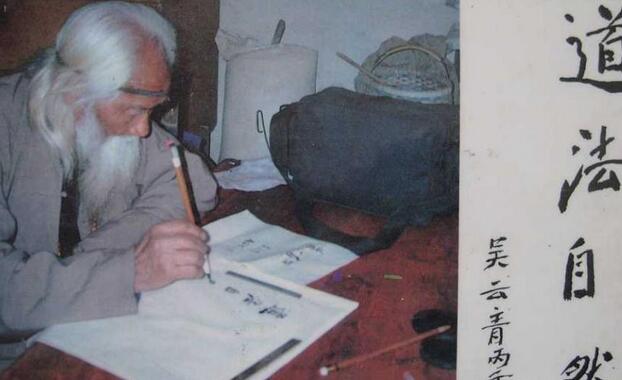 道法自然
吴云青丙